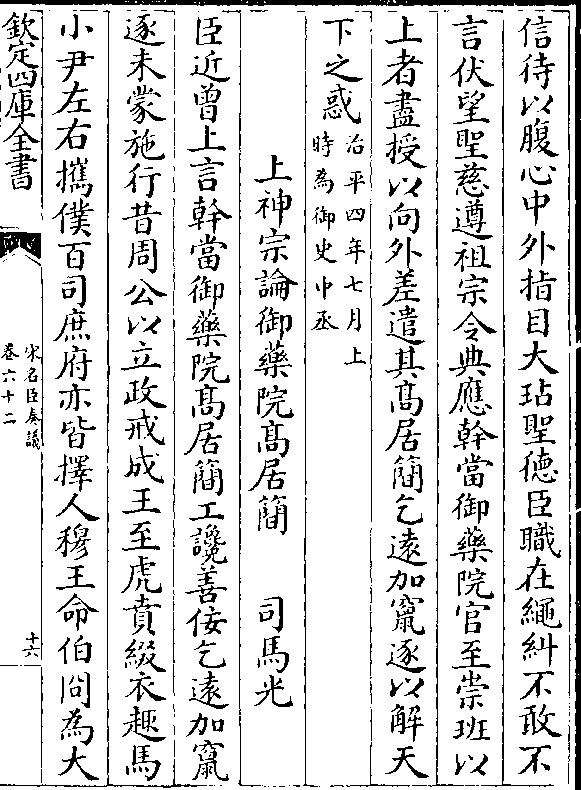 信待以腹心中外指目大玷聖德臣職在繩糾不敢不
言伏望聖慈遵祖宗令典應幹當御藥院官至崇班以
上者盡授以向外差遣其髙居簡乞逺加竄逐以解天
下之惑治平四年七月上時為御史中丞
上神宗論御藥院髙居簡　司馬光
臣近曾上言幹當御藥院髙居簡工讒善佞乞逺加竄
逐未蒙施行昔周公以立政戒成王至虎賁綴衣趣馬
小尹左右攜僕百司庶府亦皆擇人穆王命伯冏為大
欽定四庫全書
宋名臣奏議
卷六十二
十六